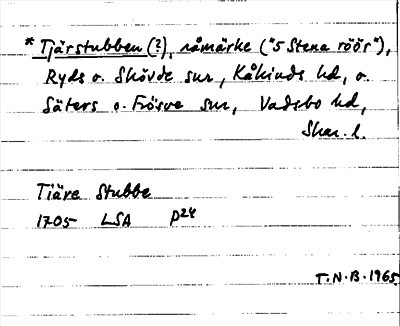 * Tjärstubben (?), råmärke ("5 Stena röör"),
Ryds o. Skövde snr, Kåkinds hd, o.
Säters o. Frösve snr, Vadsbo hd,
Skar. l.
Tiäre Stubbe
1705 LSA P24
T.N.B. 1965.